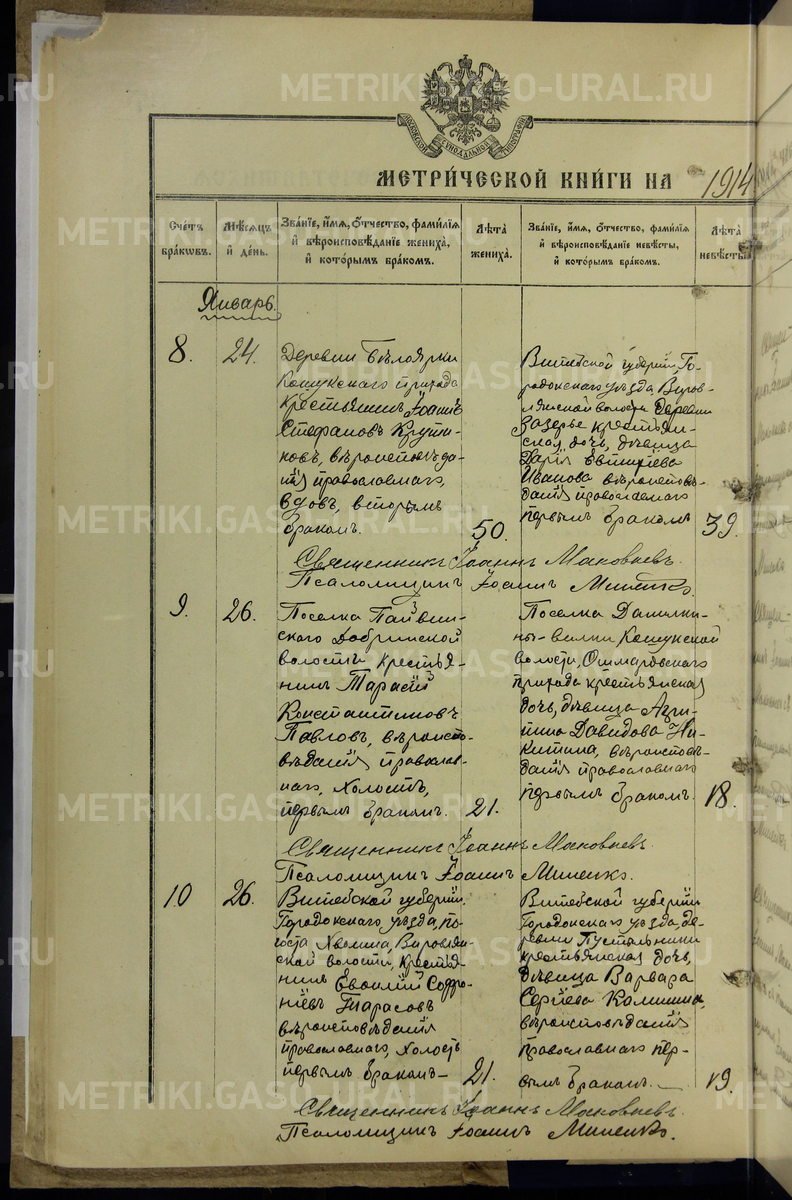 МОСКОВСКОЙ СѴНОДАЛЬНОЙ ТИПОГРАФІИ
МЕТРИ́ЧЕСКОЙ КНИ́ГИ НА 1914
Сче́тъ
бра́кѡвъ.
Мѣ́сяцъ
и҆ де́нь.
Зва́нїе, и҆́мя, ѻ҆́тчество, фами́лїя
и҆ вѣроисповѣ́данїе жениха̀,
и҆ кото́рымъ бра́комъ.
Лѣ́та
жениха̀.
Зва́нїе, и҆́мя, ѻ҆́тчество, фами́лїя
и҆ вѣроисповѣ́данїе невѣ́сты,
и҆ кото́рымъ бра́комъ.
Лѣ́та
невѣ́сты
Январь.
8.
24.
Деревни Бѣлоярки
Кошукскаго прихода
крестьянинъ Іоаннъ
Стефановъ Крути-
ковъ, вѣроисповѣда-
нія православнаго,
вдовъ, вторымъ
бракомъ.
50.
Витебской губерніи, Го-
родокскаго уѣзда, Виров-
лянской волости деревни
Зазерье крестьян-
ская дочь, дѣвица
Дарія Евтихіева
Иванова вѣроисповѣ-
данія православнаго
первымъ бракомъ
39.
Священникъ Іоаннъ Маковѣевъ.
Псаломщикъ Іоаннъ Миненко.
9.
26.
Поселка Пайвин-
скаго Добринской
волости крестья-
нинъ Тарасій
Константиновъ
Павловъ, вѣроиспо-
вѣданія православ-
наго, холостъ,
первымъ бракомъ.
21.
Поселка Данилки-
ны-вилки Кошукской
волости, Ошмаровскаго
прихода крестьянская
дочь, дѣвица Агри-
пина Давидова Ни-
китина, вѣроисповѣ-
данія православнаго
первымъ бракомъ.
18.
Священникъ Іоаннъ Маковѣевъ
Псаломщикъ Іоаннъ Миненко.
10
26.
Витебской губерніи,
Городокскаго уѣзда, по-
госта Хвошна, Вировлян-
ской волости, крестья-
нинъ Евѳимій Софро-
ніевъ Тарасовъ
вѣроисповѣданія
православнаго, холостъ
первымъ бракомъ
21.
Витебской губерніи
Городокскаго уѣзда, де-
ревни Пустельники
крестьянская дочь,
дѣвица Варвара
Сергіева Калинина,
вѣроисповѣданія
православнаго пер-
вымъ бракомъ.
19.
Священникъ Іоаннъ Маковѣевъ.
Псаломщикъ Іоаннъ Миненко.
METRIKI.GASO-URAL.RU